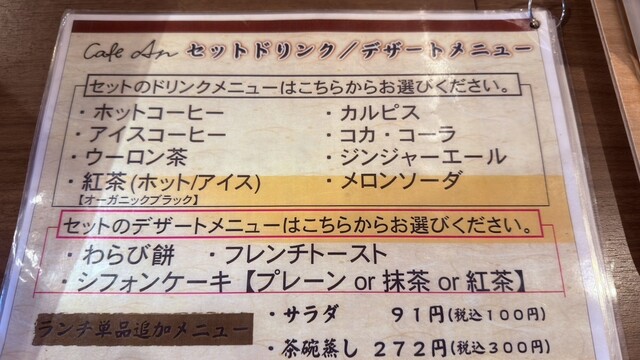 Cafe An セットドリンク／デザートメニュー
セットのドリンクメニューはこちらからお選びください。
・ホットコーヒー ・カルピス
・アイスコーヒー ・コカ・コーラ
・ウーロン茶 ・ジンジャーエール
・紅茶(ホット/アイス) ・メロンソーダ
【オーガニックブラック】
セットのデザートメニューはこちらからお選びください。
・わらび餅 ・フレンチトースト
・シフォンケーキ【プレーン or 抹茶 or 紅茶】
ランチ単品追加メニュー
・サラダ 91円(税込100円)
・茶碗蒸し 272円(税込300円)